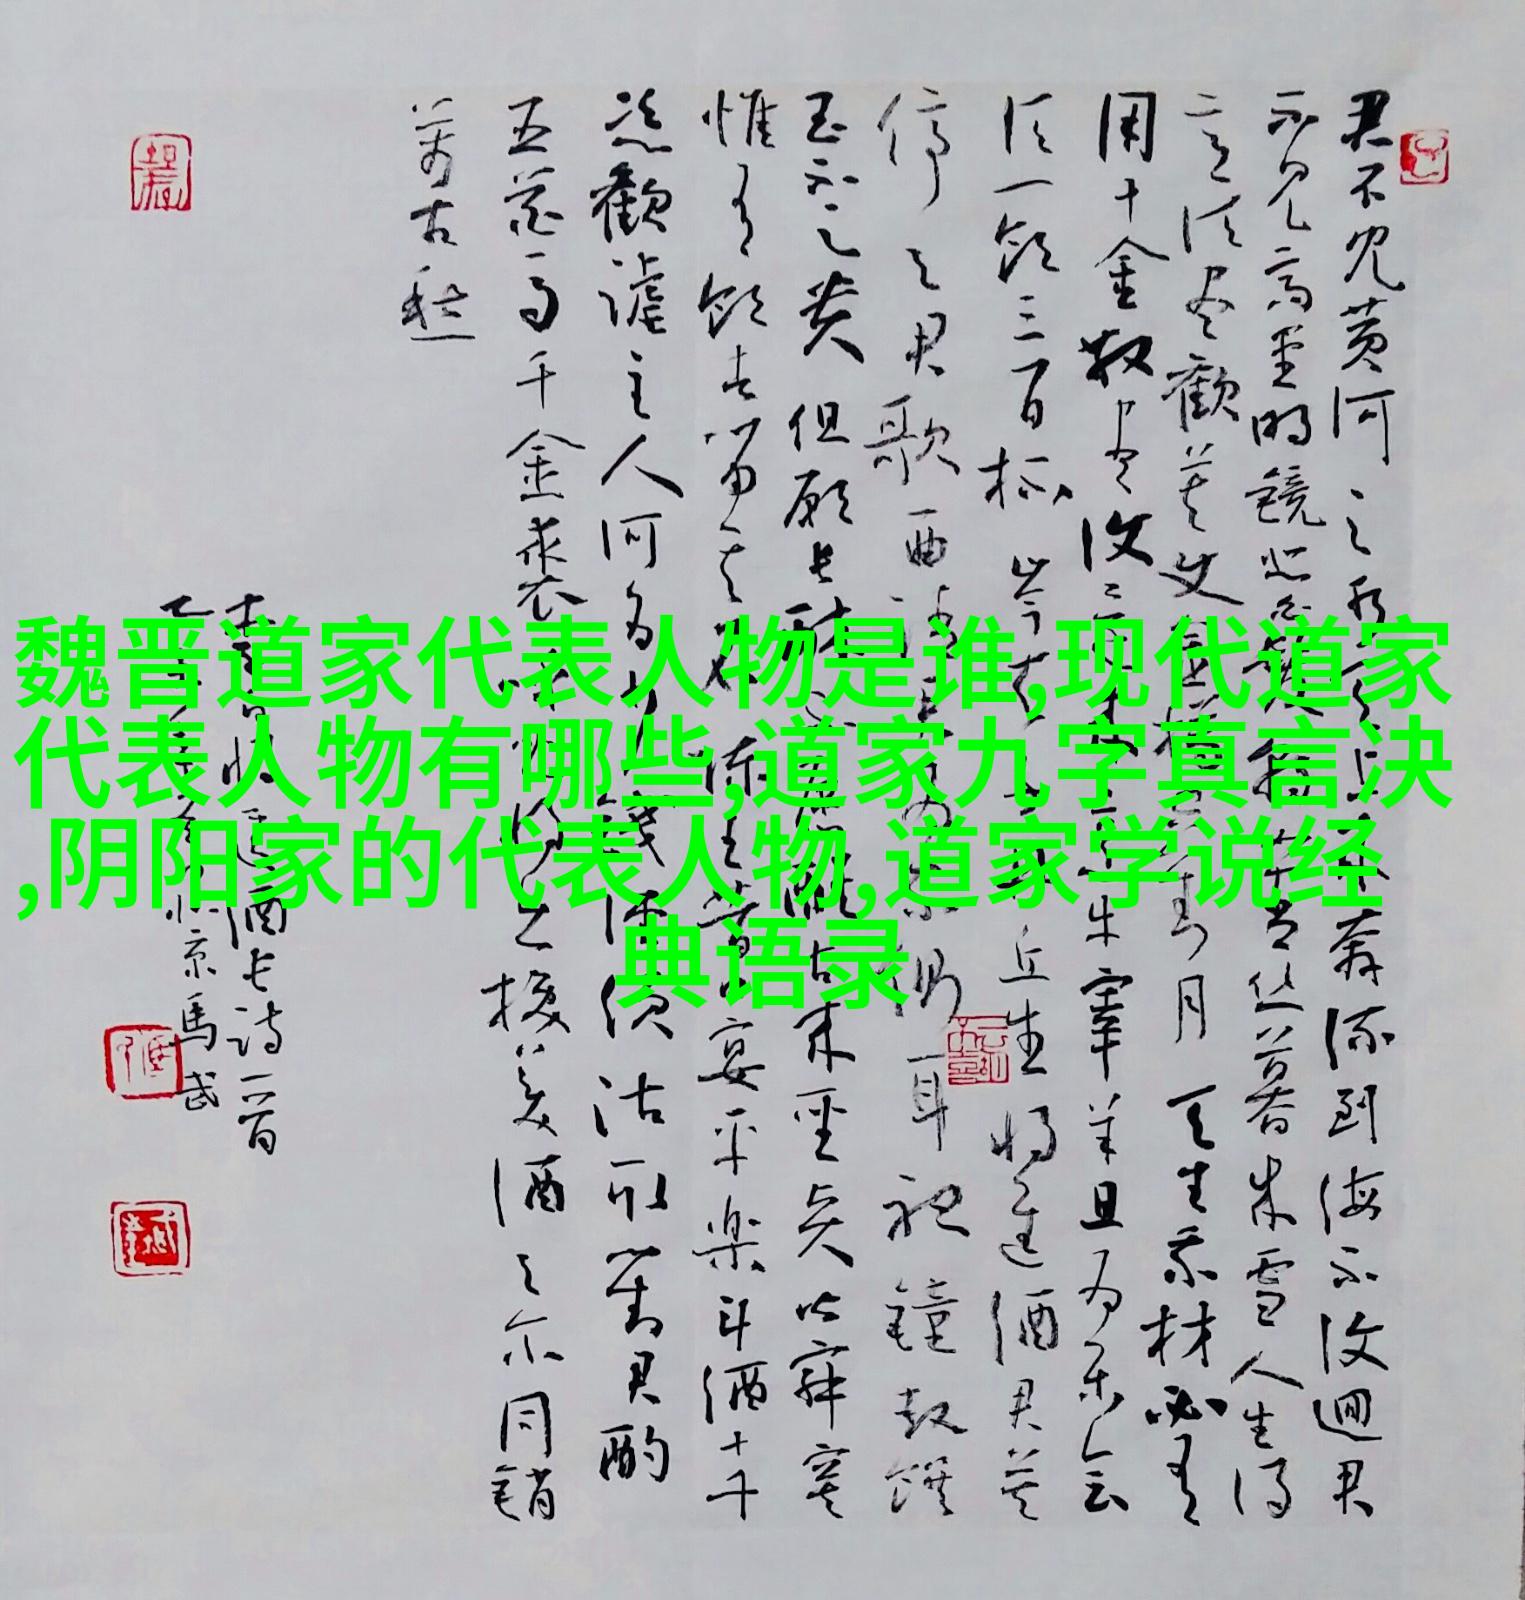 魏晋道家代表人物是谁,现代道家
代表人物有哪些,道家九字真言决
,阴阳家的代表人物,道家学说经
典语录
君不见黄河之水天上来奔流到海不復迴君
不见高堂明镜悲白髮朝如青丝暮成雪人生得
意须尽歡莫使金樽空對月天生我材必有
用千金散尽復還来烹牛宰羊且为乐会
须一饮三百杯岑夫子丹丘生将进酒君莫
停与君歌一曲请君为我倾耳聽鐘鼓馔
玉不足贵但願长醉不愿醒古来聖贤皆寂寞
惟有饮者留其名陈王昔时宴平楽斗酒十千
恣歡谑主人何为言少錢径须沽取對君酌
五花马千金裘呼儿将出换美酒与尔同銷
萬古愁
李白将进酒长诗一首
京馬武